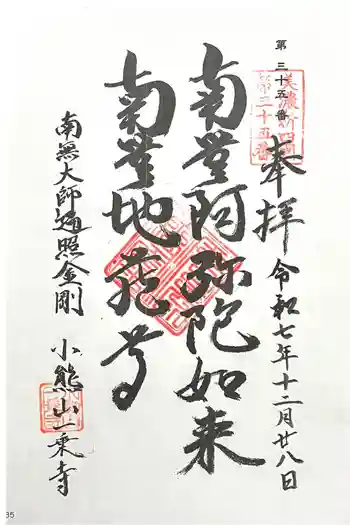 第三十五番
美濃新四国
第三十五番
奉拝
令和七年十二月廿八日
南無阿弥陀如来
南無地蔵尊
南無大師遍照金剛
小熊山一乗寺
35